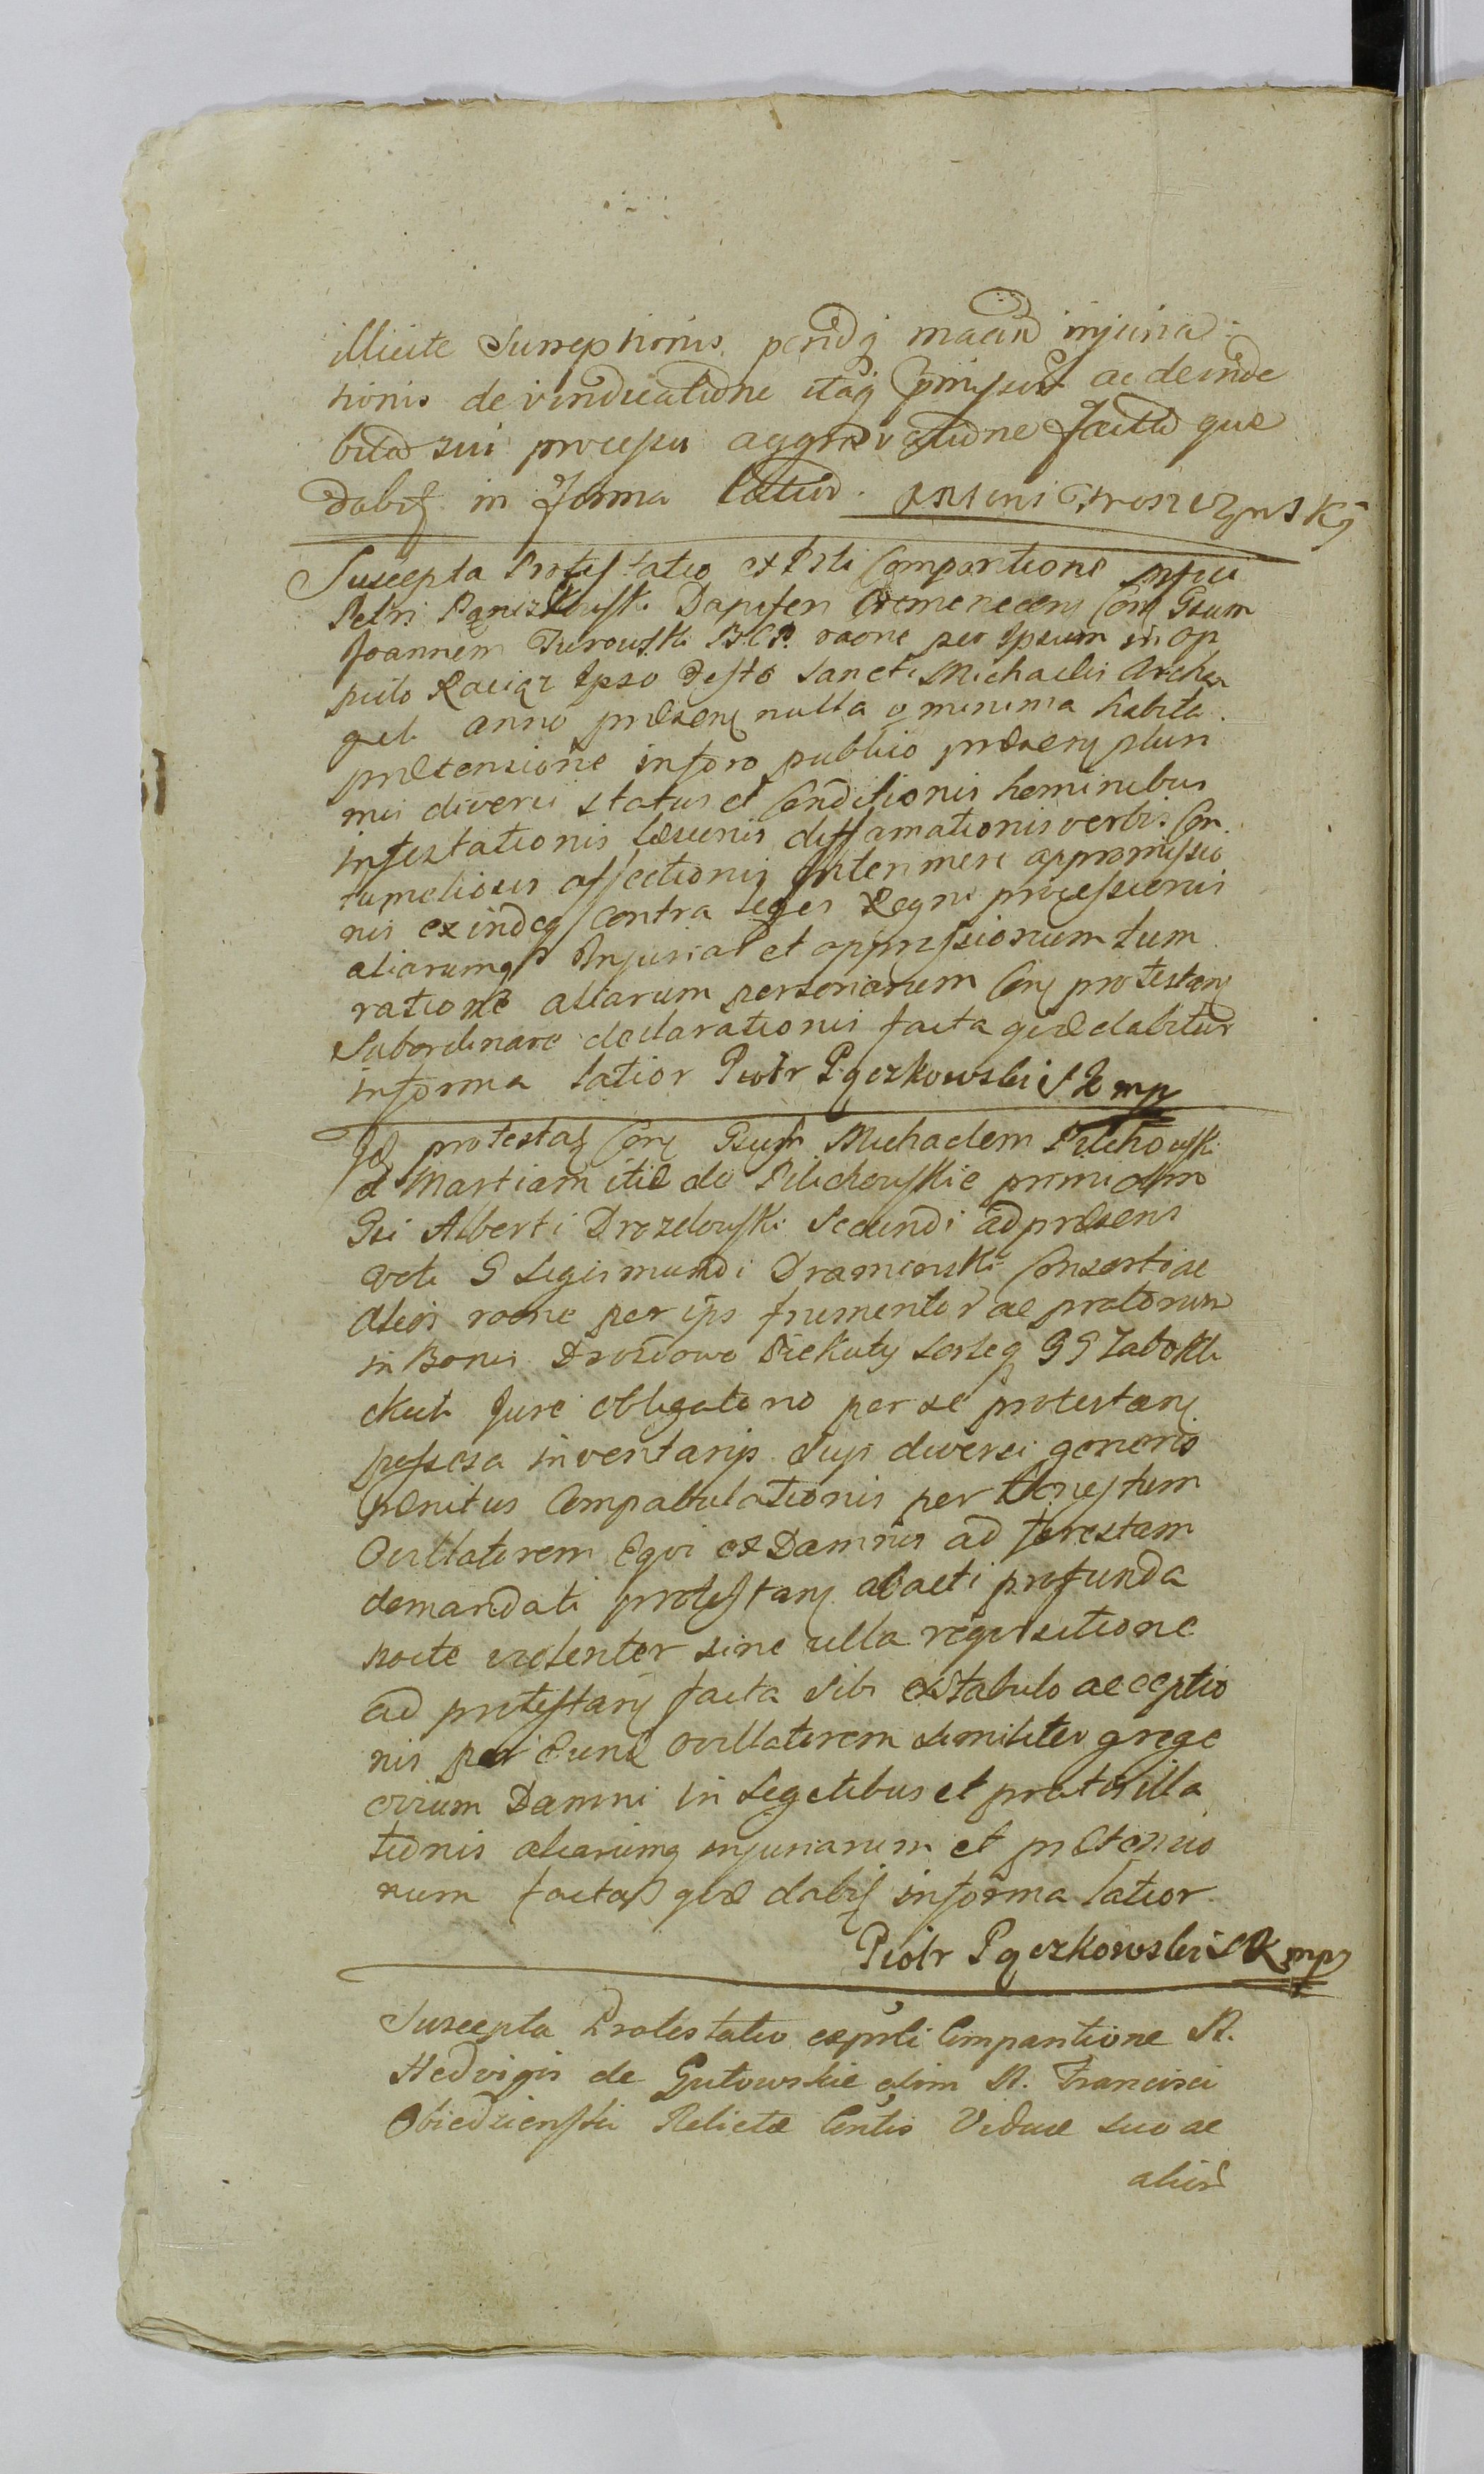 illicite Surreptionis
tionis de vindicatione itaq ac deinde
bita sui processu aggravatione facta quæ
dabit in forma latior. Antoni Troszczynsky
Suscepta Protestatio ex Prsti Comparitione Mfici
Petri Pączkouski Dapiferi Cremenecens Con Gsum
Joannem Turouski B.C.P. raone per Ipsum in Op
pido Raciąz Ipso Festo Sancti Michaelis Archan
geli anno præsen nulla q minima habita
prætensione in foro publico præsen pluri
mis diversi status et Conditionis hominibus
infestationis læsionis diffamationis verbis Con
tumeliosis affectionis Interimere appromissio
nis exindeq Contra Leges Regni processionis
aliarumq Injuriar et oppressionum tum
ratione aliarum personarum Con protestan
Subordinare declarationis facta quæ dabitur
in forma latior Piotr Pączkowski S K mp
Id protestat Con Gsum Michaelem Pilichouski
et Martiam itid de Pilichouskie primi olim
Gsi Alberti Drozdouski Secundi ad præsens
voti G Sigismundi Draminski Consortiæ
Alios raone per ips frumentor ac pratorum
in Bonis Drozdowo Piekuty GG Zabokli
ckich Jure obligatorio per se protestan
possessa inventarijs Suis diversi generis
penitus Compabulationis per Honestum
Ovillatorem Equi ex Damnis ad forestam
demandati protestan abacti profunda
nocte violenter sine ulla requisitione
ad protestan facta Sibi ex Stabulo acceptio
nis per Eund Ovillatorem similiter grege
ovium Damni in Segetibus et pratis illa
tionis aliarumq injuriarum et prætensio
num facta quæ dabit in forma latior.
Piotr Pączkowski S K mp
Suscepta Protestatio ex prsti Comparitione N.
Hedvigis de Gutowskie olim N. Francisci
Obiedzienski Relictæ Contis Viduæ suo ac
alior